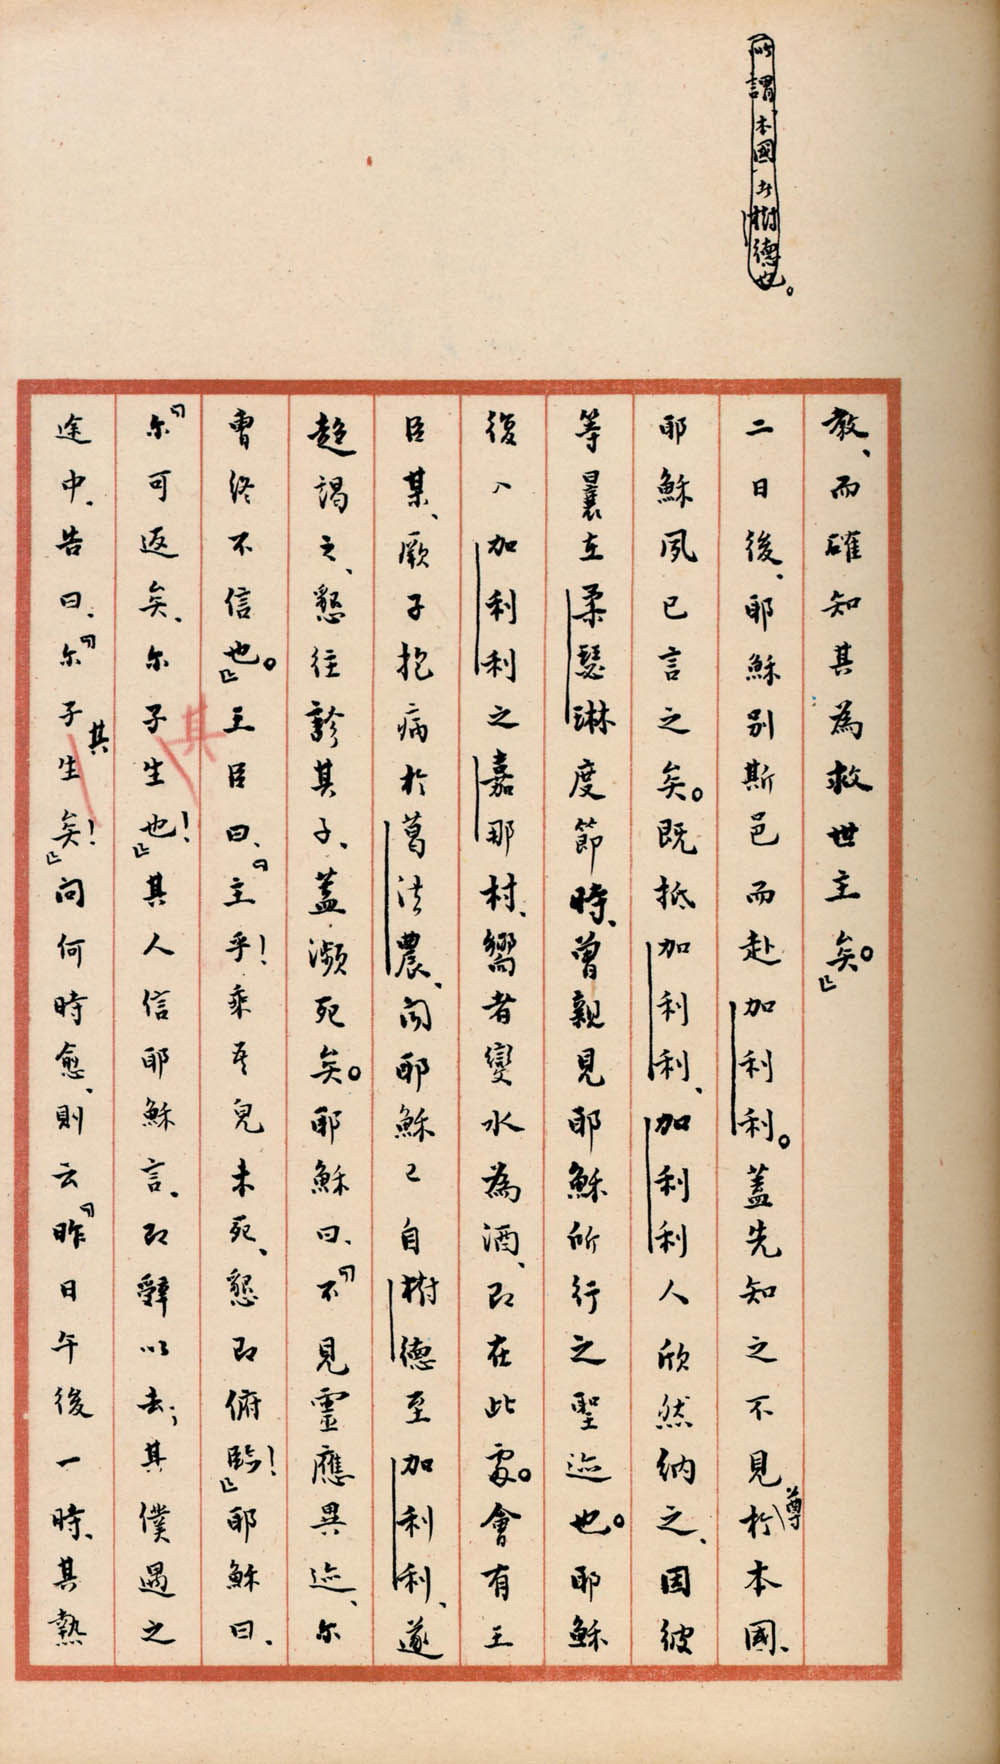 所謂本國者樹德也。
教、而確知其為救世主矣。』
二日後、耶穌別斯邑而赴加利利。蓋先知之不見尊於本國、
耶穌夙已言之矣。既抵加利利、加利利人欣然納之、因彼
等曩在柔瑟琳度節時、曾親見耶穌所行之聖迹也。耶穌
復入加利利之嘉那村、嚮者變水為酒、即在此處。會有王
臣某、厥子抱病於葛法農、聞耶穌已自樹德至加利利、遂
趨謁之、懇往診其子、蓋瀕死矣。耶穌曰、『不見靈應異迹、尔
曹終不信也。』王臣曰、『主乎！乘吾兒未死、懇即俯臨！』耶穌曰、
『尔可返矣、尔子其生也！』其人信耶穌言、即辭以去；其僕遇之
途中、告曰、『尔子其生矣！』問何時愈、則云『昨日午後一時、其熱